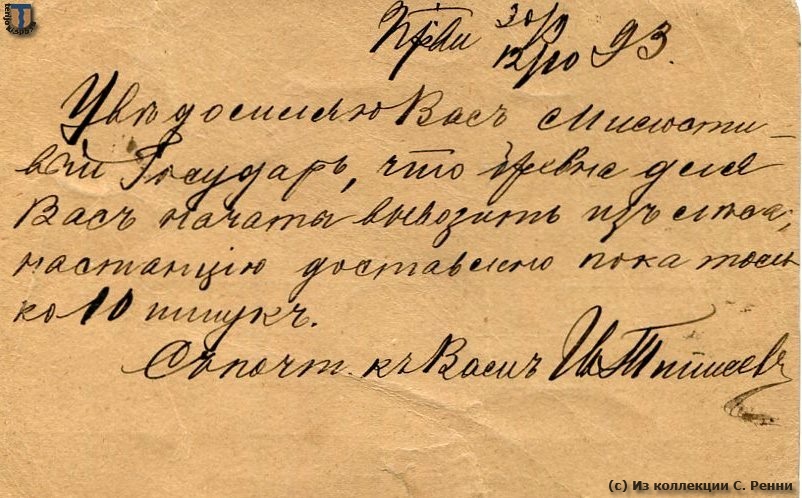 30/9
12/10 93.
Увѣдомляю Васъ Милости-
вый Государь, что бревна для
Васъ начаты вывозить изъ лѣса,
на станцію доставлено пока толь
ко 10 штукъ.
Съ почт. къ Вамъ Ив
(с) Из коллекции С. Ренни